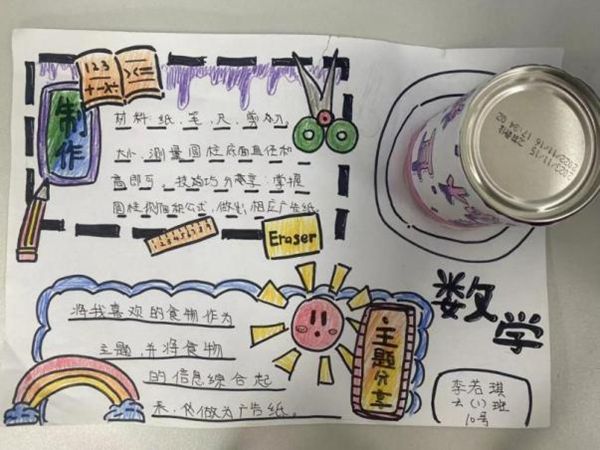 123
制作
材料:纸、笔、尺、剪刀、
大小、测量圆柱底面直径和
高即可。技巧分享:掌握
圆柱侧面积公式,做出相应广告纸。
Eraser
将我喜欢的食物作为
主题,并将食物
的信息综合起
来,做为广告纸。
主题分享
数学
李若琪
六(1)班
10号
2022/11/16 17:34 02